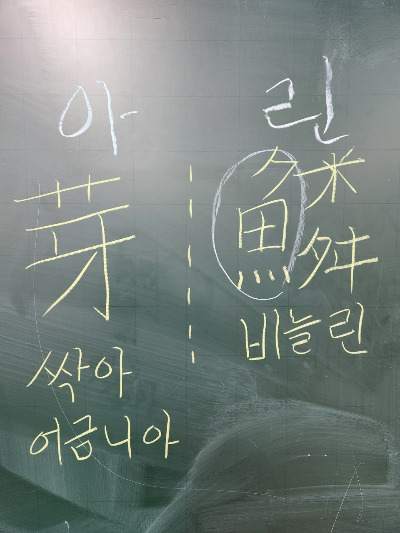 아
芽
싹아
어금니아
린
鱗
비늘린